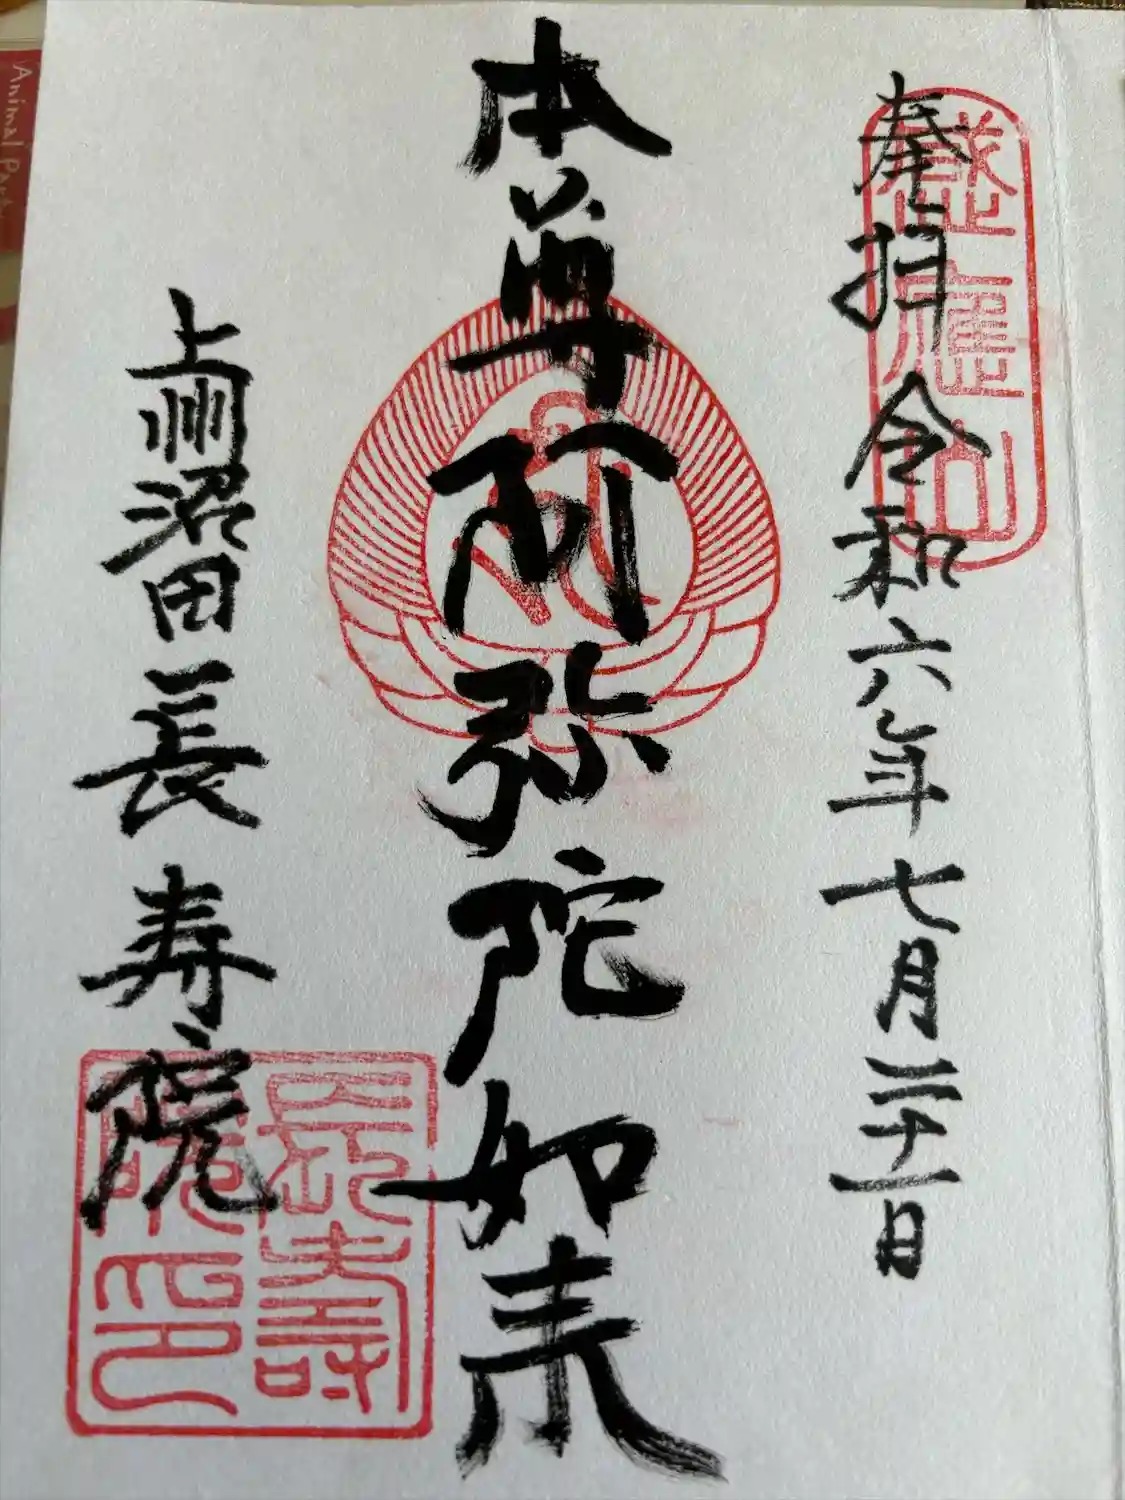 奉拝 令和六年七月二十一日
感應山
本尊阿弥陀如来
上州沼田 長寿院
長壽
院印
Animal Park